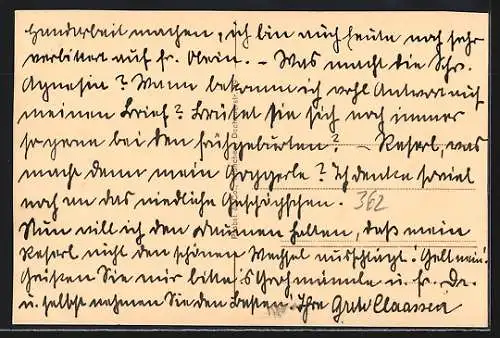 Handarbeit machen, ich bin auch heute noch sehr
verbittert auf fr. Olein. – Was macht die Schw.
Agnesin? Wann bekomm ich wohl Antwort auf
meinen Brief? Brütet sie sich noch immer
so gerne bei den Frühgeburten? – Reserl, was
macht denn mein Goggerle? Ich denke so viel
noch an das niedliche Geschöpfchen.
362
Nun will ich den Daumen halten, daß mein
Reserl nicht den schönen Wechsel ausschlägt! Gelt nein!
Grüßen Sie mir bitte s u. fr. Dr.
u. selbst nehmen Sie den Besten! Ihre Grete Claassen